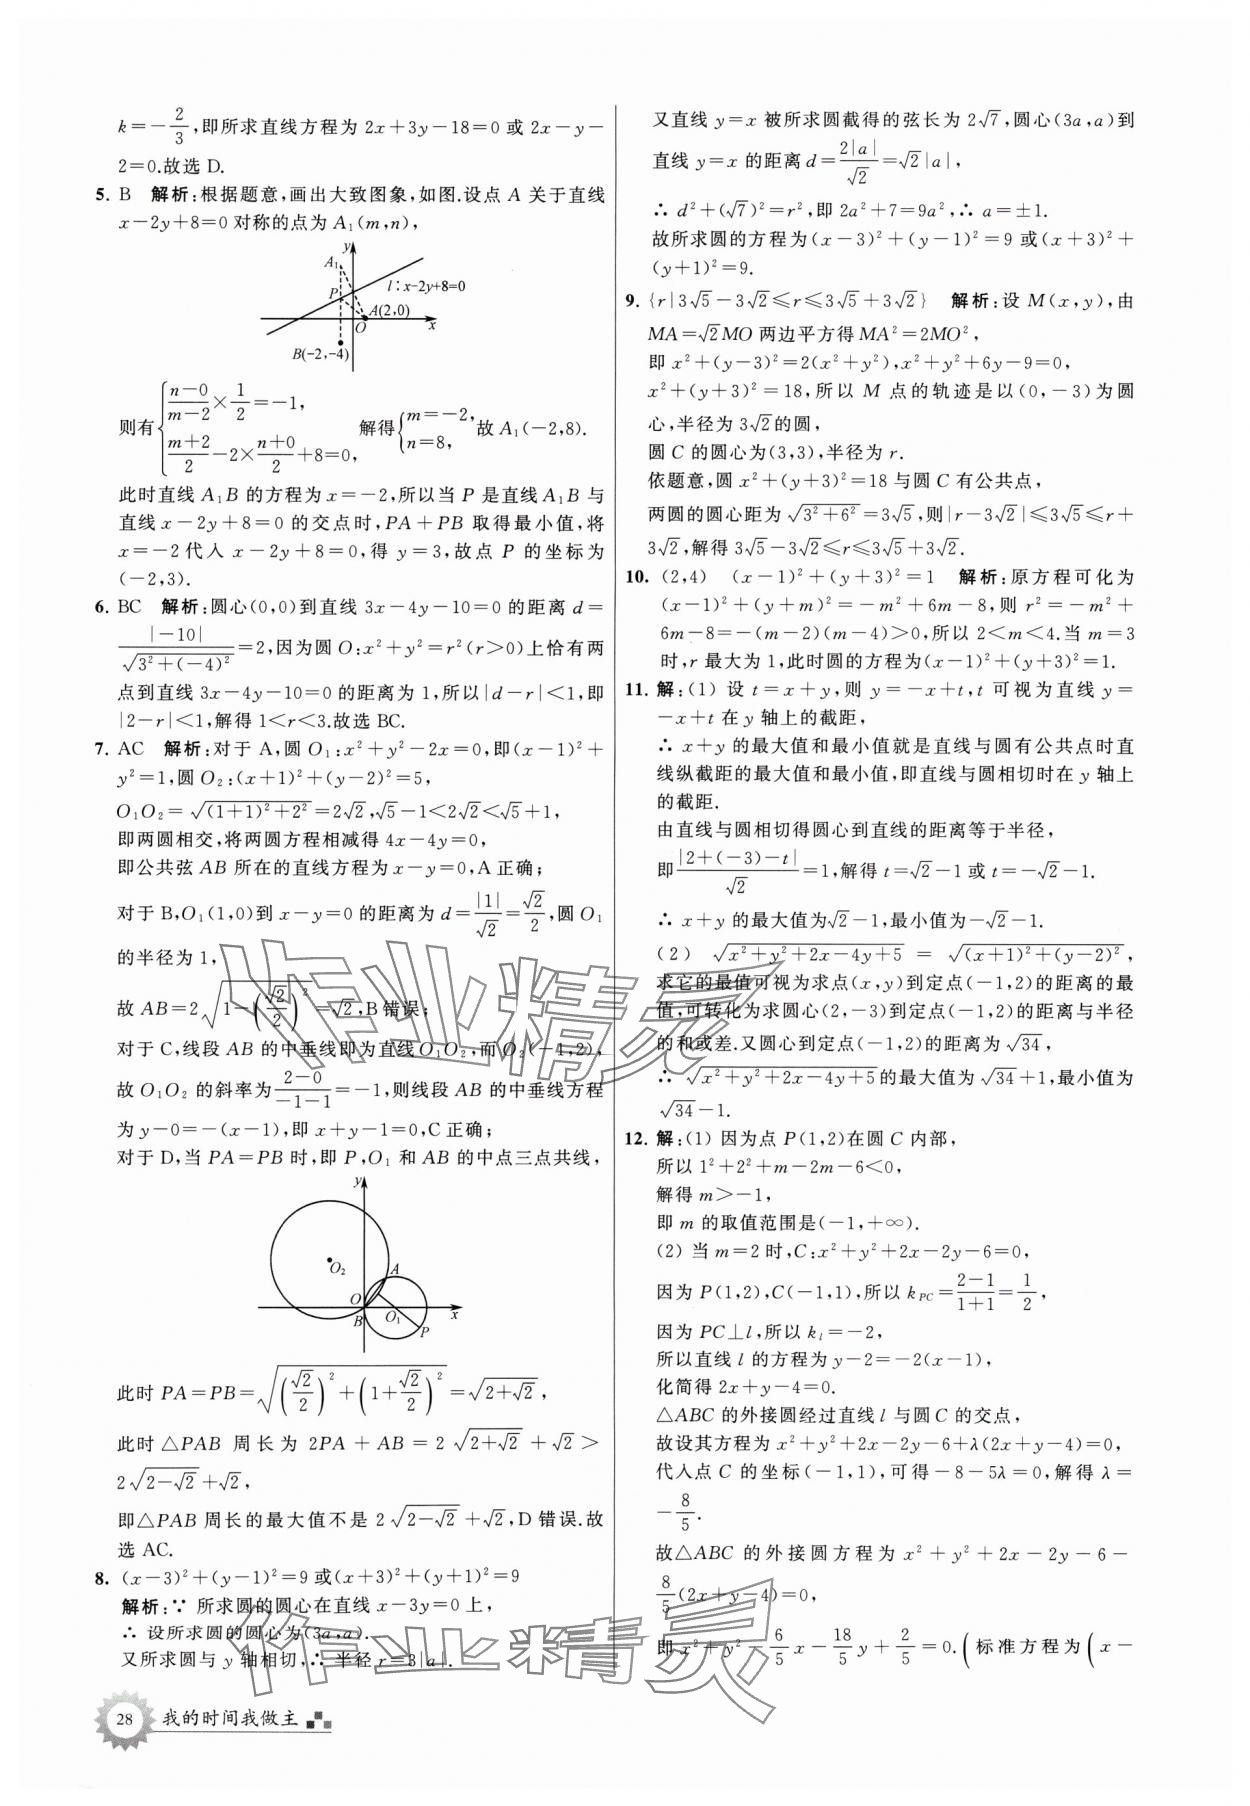 k=-2/3,即所求直线方程为 2x+3y-18=0 或 2x-y-
2=0.故选 D.
5. B 解析:根据题意,画出大致图象,如图.设点 A 关于直线
x-2y+8=0 对称的点为 A₁(m,n),
y
A₁
l:x-2y+8=0
P
A(2,0)
O x
B(-2,-4)
则有{(n-0)/(m-2)×1/2=-1, (m+2)/2-2×(n+0)/2+8=0, 解得{m=-2, n=8, 故 A₁(-2,8).
此时直线 A₁B 的方程为 x=-2,所以当 P 是直线A₁B 与
直线 x-2y+8=0 的交点时,PA+PB 取得最小值,将
x=-2代入 x-2y+8=0,得 y=3,故点 P 的坐标为
(-2,3).
6. BC 解析:圆心(0,0)到直线 3x-4y-10=0 的距离 d=
|-10|/√(3²+(-4)²)=2,因为圆 O:x²+y²=r²(r>0)上恰有两
点到直线 3x-4y-10=0 的距离为 1,所以|d-r|<1,即
|2-r|<1,解得 1<r<3.故选 BC.
7. AC 解析:对于 A,圆 O₁:x²+y²-2x=0,即(x-1)²+
y²=1,圆 O₂:(x+1)²+(y-2)²=5,
O₁O₂=√((1+1)²+2²)=2√2,√5-1<2√2<√5+1,
即两圆相交,将两圆方程相减得 4x-4y=0,
即公共弦 AB 所在的直线方程为 x-y=0,A 正确;
对于 B,O₁(1,0)到 x-y=0 的距离为 d=|1|/√2=√2/2,圆 O₁
的半径为 1,
故 AB=2√(1-(√2/2)²)=√2,B错误;
对于 C,线段 AB 的中垂线即为直线O₁O₂,而O₂(-1,2),
故 O₁O₂ 的斜率为(2-0)/(-1-1)=-1,则线段 AB 的中垂线方程
为 y-0=-(x-1),即 x+y-1=0,C正确;
对于 D,当 PA=PB 时,即 P,O₁ 和 AB 的中点三点共线,
y
O₂
A
O
B O₁ x
P
此时 PA=PB=√((√2/2)²+(1+√2/2)²)=√(2+√2),
此时 △PAB 周长为 2PA+AB=2√(2+√2)+√2>
2√(2-√2)+√2,
即△PAB 周长的最大值不是 2√(2-√2)+√2,D 错误.故
选 AC.
8. (x-3)²+(y-1)²=9 或(x+3)²+(y+1)²=9
解析:∵ 所求圆的圆心在直线 x-3y=0 上,
∴ 设所求圆的圆心为(3a,a).
又所求圆与 y 轴相切,∴ 半径 r=3|a|.
又直线 y=x 被所求圆截得的弦长为 2√7,圆心(3a,a)到
直线 y=x 的距离 d=2|a|/√2=√2|a|,
∴ d²+(√7)²=r²,即 2a²+7=9a²,∴ a=±1.
故所求圆的方程为(x-3)²+(y-1)²=9 或(x+3)²+
(y+1)²=9.
9. {r|3√5-3√2≤r≤3√5+3√2} 解析:设 M(x,y),由
MA=√2MO 两边平方得MA²=2MO²,
即 x²+(y-3)²=2(x²+y²),x²+y²+6y-9=0,
x²+(y+3)²=18,所以 M 点的轨迹是以(0,-3)为圆
心,半径为 3√2的圆,
圆 C 的圆心为(3,3),半径为 r.
依题意,圆 x²+(y+3)²=18 与圆 C 有公共点,
两圆的圆心距为 √(3²+6²)=3√5,则|r-3√2|≤3√5≤r+
3√2,解得 3√5-3√2≤r≤3√5+3√2.
10. (2,4) (x-1)²+(y+3)²=1 解析:原方程可化为
(x-1)²+(y+m)²=-m²+6m-8,则 r²=-m²+
6m-8=-(m-2)(m-4)>0,所以 2<m<4.当 m=3
时,r 最大为 1,此时圆的方程为(x-1)²+(y+3)²=1.
11. 解:(1) 设 t=x+y,则 y=-x+t,t 可视为直线 y=
-x+t 在 y 轴上的截距,
∴ x+y 的最大值和最小值就是直线与圆有公共点时直
线纵截距的最大值和最小值,即直线与圆相切时在 y 轴上
的截距.
由直线与圆相切得圆心到直线的距离等于半径,
即|2+(-3)-t|/√2=1,解得 t=√2-1 或 t=-√2-1.
∴ x+y 的最大值为√2-1,最小值为-√2-1.
(2) √(x²+y²+2x-4y+5) = √((x+1)²+(y-2)²),
求它的最值可视为求点(x,y)到定点(-1,2)的距离的最
值,可转化为求圆心(2,-3)到定点(-1,2)的距离与半径
的和或差.又圆心到定点(-1,2)的距离为 √34,
∴ √(x²+y²+2x-4y+5)的最大值为 √34+1,最小值为
√34-1.
12. 解:(1) 因为点 P(1,2)在圆 C 内部,
所以 1²+2²+m-2m-6<0,
解得 m>-1,
即 m 的取值范围是(-1,+∞).
(2) 当 m=2 时,C:x²+y²+2x-2y-6=0,
因为 P(1,2),C(-1,1),所以 k_PC=(2-1)/(1+1)=1/2,
因为 PC⊥l,所以 k_l=-2,
所以直线 l 的方程为 y-2=-2(x-1),
化简得 2x+y-4=0.
△ABC 的外接圆经过直线 l 与圆 C 的交点,
故设其方程为 x²+y²+2x-2y-6+λ(2x+y-4)=0,
代入点 C 的坐标(-1,1),可得-8-5λ=0,解得 λ=
-8/5.
故△ABC 的外接圆方程为 x²+y²+2x-2y-6-
8/5(2x+y-4)=0,
即 x²+y²-6/5x-18/5y+2/5=0.(标准方程为(x-
28 我的时间我做主
作业精灵
作业精灵